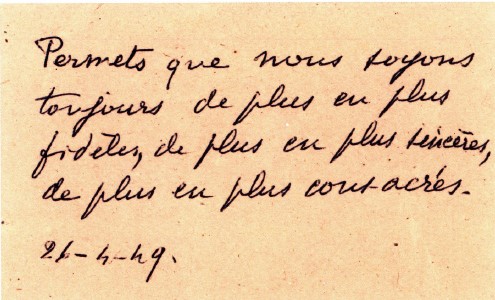 Permets que nous soyons
toujours de plus en plus
fidèles, de plus en plus sincères,
de plus en plus consacrés.
26-4-49.